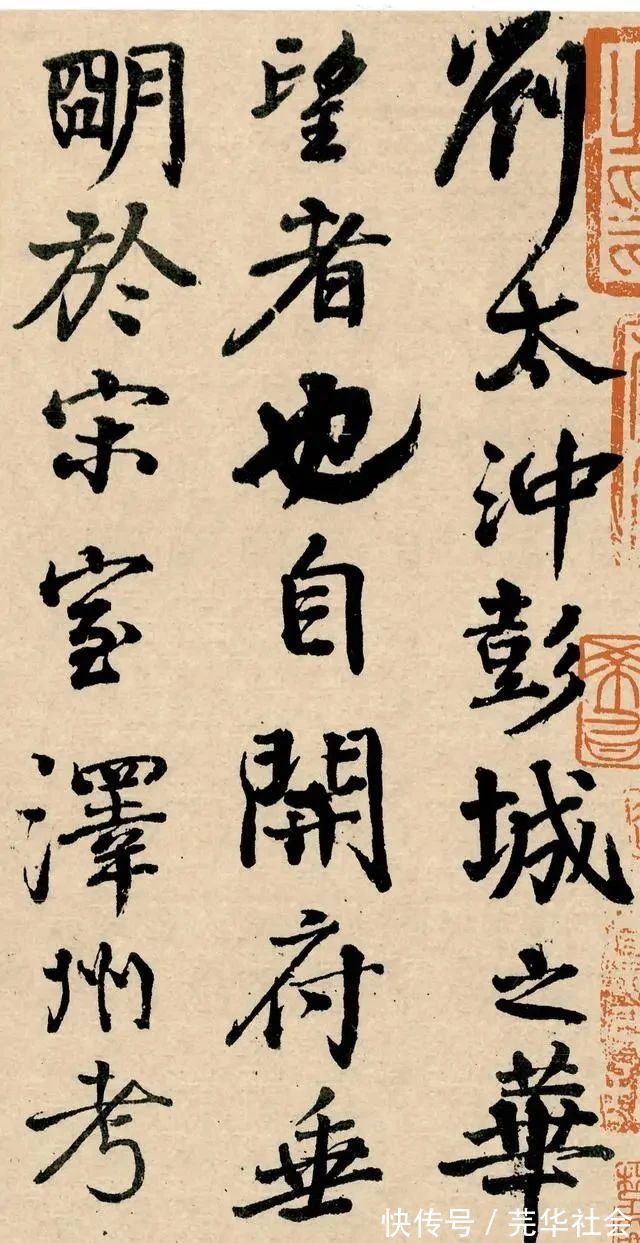 劉太沖彭城之華
望者也自開府垂
朙於宋室澤州考
快传号 / 芜华社会